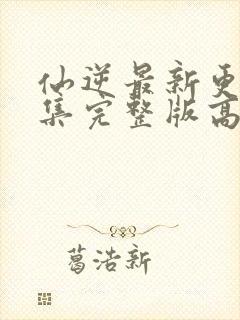 仙逆最新更
集完整版高
葛浩新